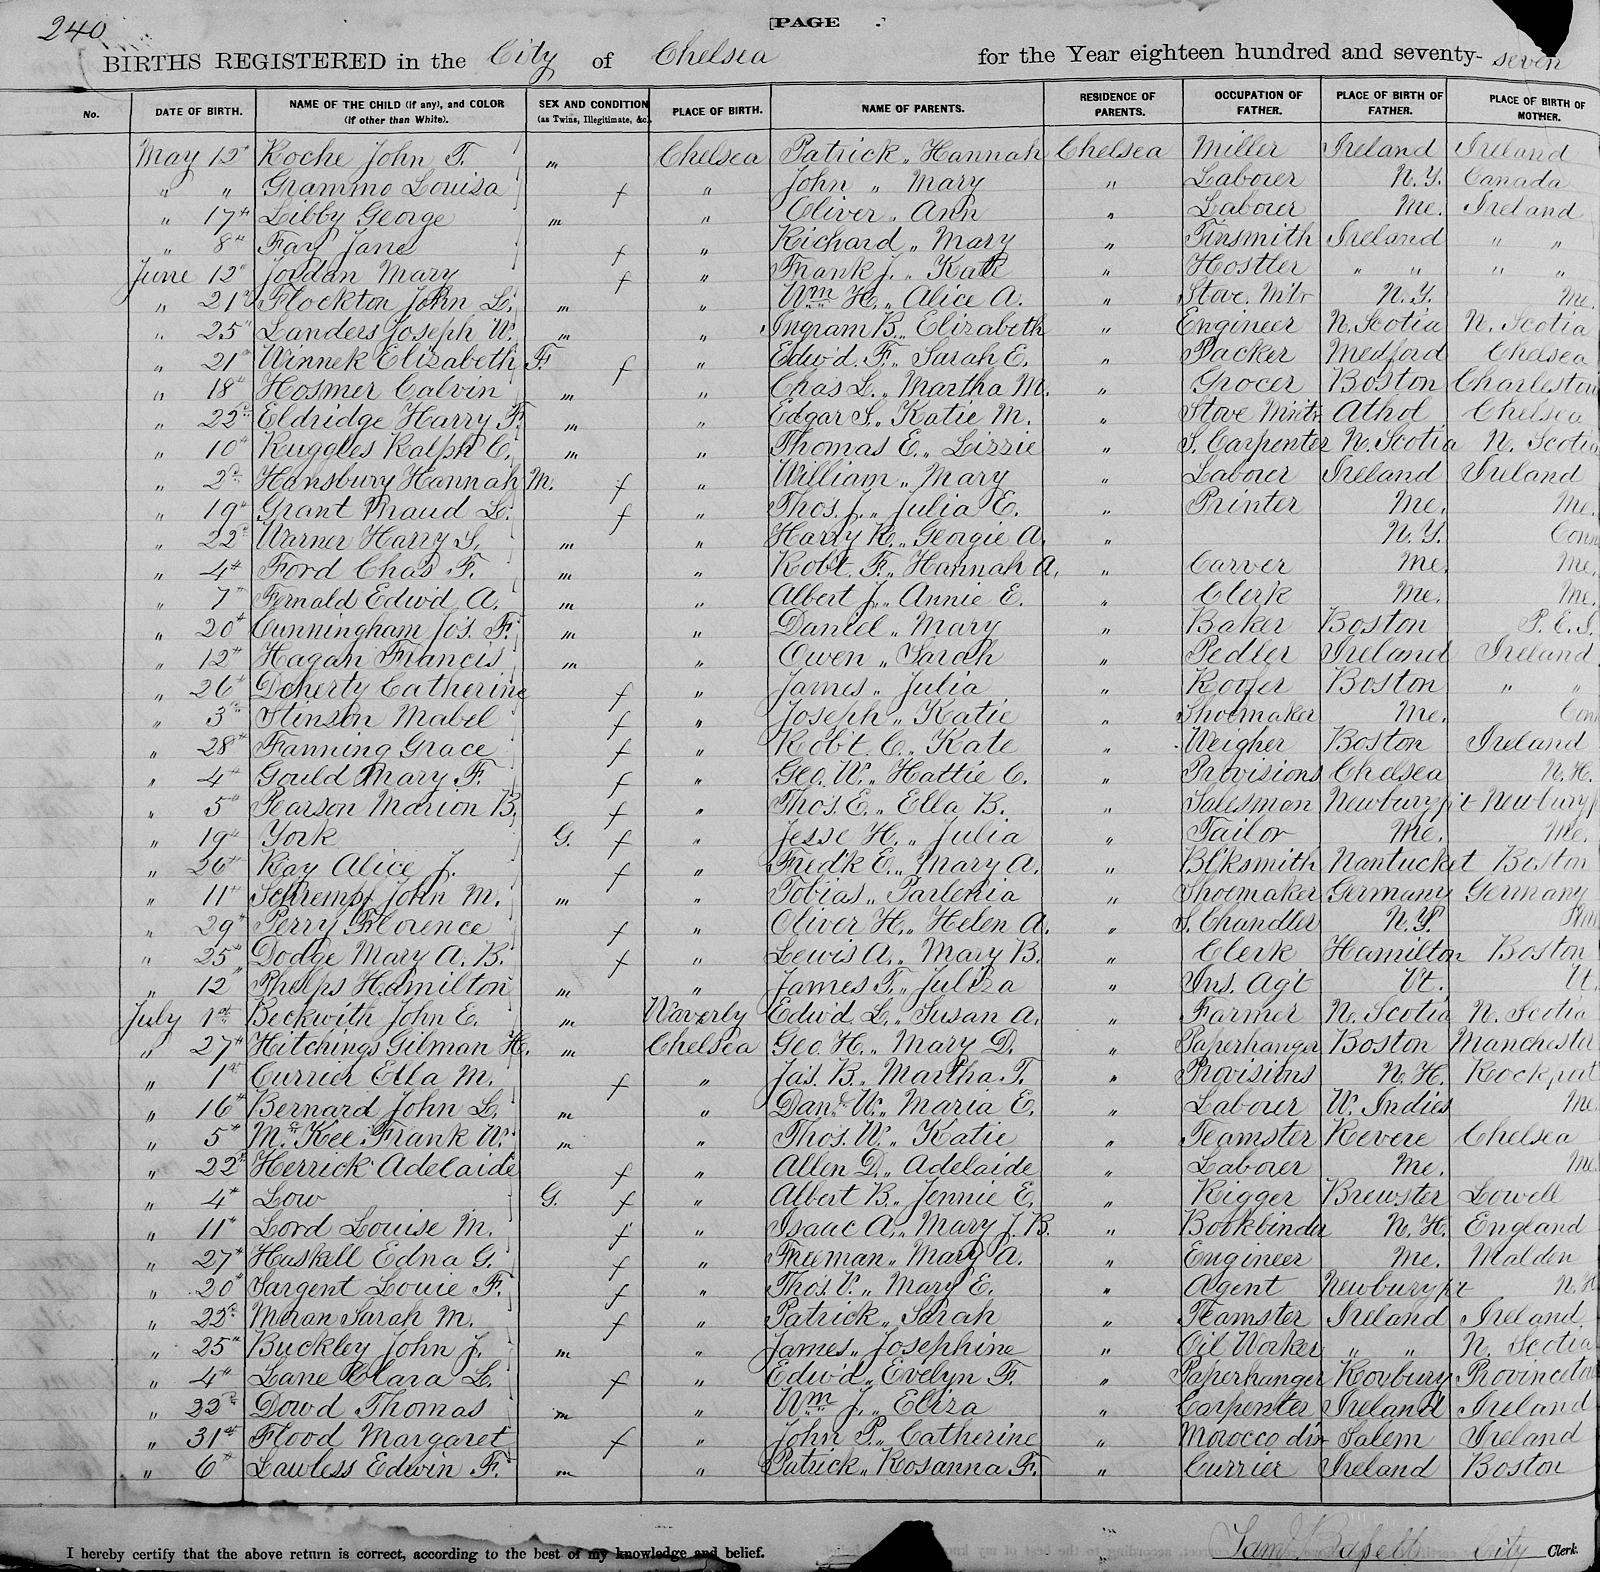 240
PAGE
BIRTHS REGISTERED in the City of Chelsea for the Year eighteen hundred and seventy-seven
No. DATE OF BIRTH. NAME OF THE CHILD (if any), and COLOR (if other than White). SEX AND CONDITION (as Twins, Illegitimate, &c). PLACE OF BIRTH. NAME OF PARENTS. RESIDENCE OF PARENTS. OCCUPATION OF FATHER. PLACE OF BIRTH OF FATHER. PLACE OF BIRTH OF MOTHER.
May 12th Roche John T. m Chelsea Patrick „ Hannah Chelsea Miller Ireland Ireland
„ „ Grammo Louisa f „ John „ Mary „ Laborer N.Y. Canada
„ 17th Libby George m „ Oliver „ Ann „ Laborer Me. Ireland
„ 8th Fay Jane f „ Richard „ Mary „ Tinsmith Ireland „ „
June 12th Jordan Mary f „ Frank J. „ Kate „ Hostler „ „ „ „
„ 21st Flockton John L. m „ Wm H. „ Alice A. „ Stove Mtr N.Y. Me.
„ 25th Landers Joseph W. m „ Ingram B. „ Elizabeth „ Engineer N. Scotia N. Scotia
„ 21st Winnek Elizabeth F. f „ Edw'd. F. „ Sarah E. „ Packer Medford Chelsea
„ 18th Hosmer Calvin m „ Chas L. „ Martha M. „ Grocer Boston Charlestow
„ 22d Eldridge Harry F. m „ Edgar S. „ Katie M. „ Stove Mntr Athol Chelsea
„ 10th Ruggles Ralph C. m „ Thomas E. „ Lizzie „ S. Carpenter N. Scotia N. Scotia
„ 2d Hansbury Hannah M. f „ William „ Mary „ Laborer Ireland Ireland
„ 19th Grant Maud L. f „ Thos. J. „ Julia E. „ Printer Me. Me.
„ 22d Warner Harry S. m „ Harry K. „ Georgie A. „ N.Y. Conn
„ 4th Ford Chas F. m „ Rob't. F. „ Hannah A. „ Carver Me. Me.
„ 7th Fernald Edw'd A. m „ Albert J. „ Annie E. „ Clerk Me. Me.
„ 20th Cunningham Jos. F. m „ Daniel „ Mary „ Baker Boston P.E.I.
„ 12th Hagan Francis m „ Owen „ Sarah „ Pedler Ireland Ireland
„ 26th Doherty Catherine f „ James „ Julia „ Roofer Boston „ „
„ 3d Stinson Mabel f „ Joseph „ Katie „ Shoemaker Me. Conn
„ 28th Fanning Grace f „ Rob't. C. „ Kate „ Weigher Boston Ireland
„ 4th Gould Mary F. f „ Geo. W. „ Hattie C. „ Provisions Chelsea N.H.
„ 5th Pearson Marion B. f „ Thos. E. „ Ella B. „ Salesman Newburyp't Newburyp
„ 19th York G. f „ Jesse H. „ Julia „ Tailor Me. Me.
„ 26th Ray Alice J. f „ Fred'k E. „ Mary A. „ Blksmith Nantucket Boston
„ 11th Schrempf John M. m „ Tobias „ Parlenia „ Shoemaker Germany Germany
„ 29th Perry Florence f „ Oliver H. „ Helen A. „ S. Chandler N.Y.
„ 25th Dodge Mary A. B. f „ Lewis A. „ Mary B. „ Clerk Hamilton Boston
„ 12th Phelps Hamilton m „ James T. „ Juliza „ Ins. Ag't Vt. Vt.
July 1st Beckwith John E. m Waverly Edw'd. L. „ Susan A. „ Farmer N. Scotia N. Scotia
„ 27th Hitchings Gilman H. m Chelsea Geo. H. „ Mary D. „ Paperhanger Boston Manchester
„ 1st Currier Etta M. f „ Jas. B. „ Martha T. „ Provisions N.H. Rockport
„ 16th Bernard John L. m „ Danl. W. „ Maria E. „ Laborer W. Indies Me
„ 5th McKee Frank W. m „ Thos. W. „ Katie „ Teamster Revere Chelsea
„ 22d Herrick Adelaide f „ Allen D. „ Adelaide „ Laborer Me. Me.
„ 4th Low G. f „ Albert B. „ Jennie E. „ Rigger Brewster Lowell
„ 11th Lord Louise M. f „ Isaac A. „ Mary J. B. „ Bookbinder N.H. England
„ 27th Haskell Edna G. f „ Freeman „ Mary A. „ Engineer Me. Malden
„ 20th Sargent Louie F. f „ Thos. V. „ Mary E. „ Agent Newburyp't N.H
„ 22d Moran Sarah M. f „ Patrick „ Sarah „ Teamster Ireland Ireland
„ 25th Buckley John J. m „ James „ Josephine „ Oil Worker „ „ N. Scotia
„ 4th Lane Clara L. f „ Edw'd „ Evelyn F. „ Paperhanger Roxbury Provinceto
„ 22d Dowd Thomas m „ Wm J. „ Eliza „ Carpenter Ireland Ireland
„ 31st Flood Margaret f „ John P. „ Catherine „ Morocco dsr Salem Ireland
„ 6th Lawless Edwin F. m „ Patrick „ Rosanna F. „ Currier Ireland Boston
I hereby certify that the above return is correct, according to the best of my knowledge and belief. Sam'l Bassett City Clerk.